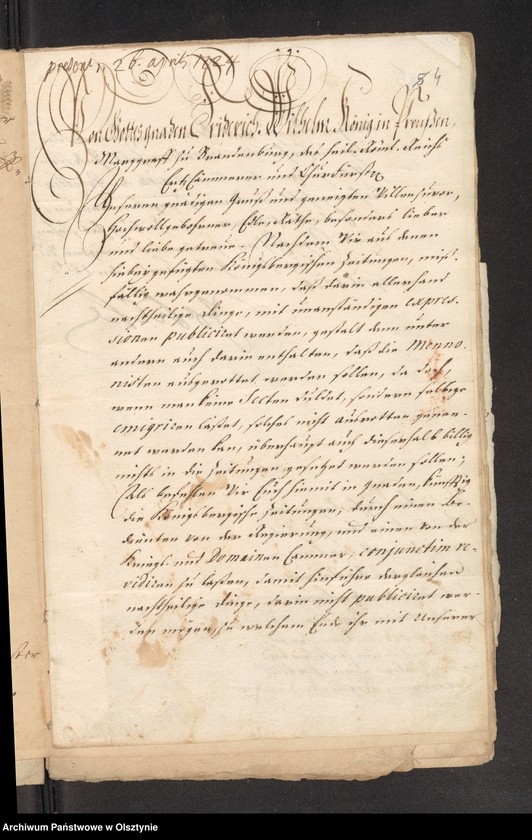 præsent. 26. april 1724
54
Von Gottes gnaden Friderich Wilhelm König in Preußen,
Marggraff zu Brandenburg, des heil. Röml. Reichs
Ertz Cämmerer und Churfürst
Unseren gnädigen Gruß und geneigten Willen zuvor,
Hochwollgebohrner, Edle Räthe, besonders lieber
und liebe getreue. Nachdem Wir aus denen
hiebeygefügten Königsbergischen Zeitungen, miß-
fällig wahrgenommen, daß darin allerhand
nachtheilige dinge, mit unanständigen expres-
sionen publiciret werden, gestalt denn unter
andern auch darin enthalten, daß die Menno-
nisten ausgerottet werden sollen, da doch,
wenn man keine Secten duldet, sondern selbige
emigriren lässet, solches nicht ausrotten genen-
net werden kan, überhaupt auch dieserhalb billig
nichts in die Zeitungen gesetzet werden sollen;
Als befehlen Wir Euch hiemit in gnaden, künfftig
die Königsbergische Zeitungen, durch einen De-
putirten von der Regierung, und einen von der
Kriegs- und Domainen Cammer, conjunctim re-
vidiren zu laßen, damit hinführo dergleichen
nachtheilige dinge, darin nicht publiciret wer-
den mögen, zu welchem Ende ihr mit Unserer
Archiwum Państwowe w Olsztynie